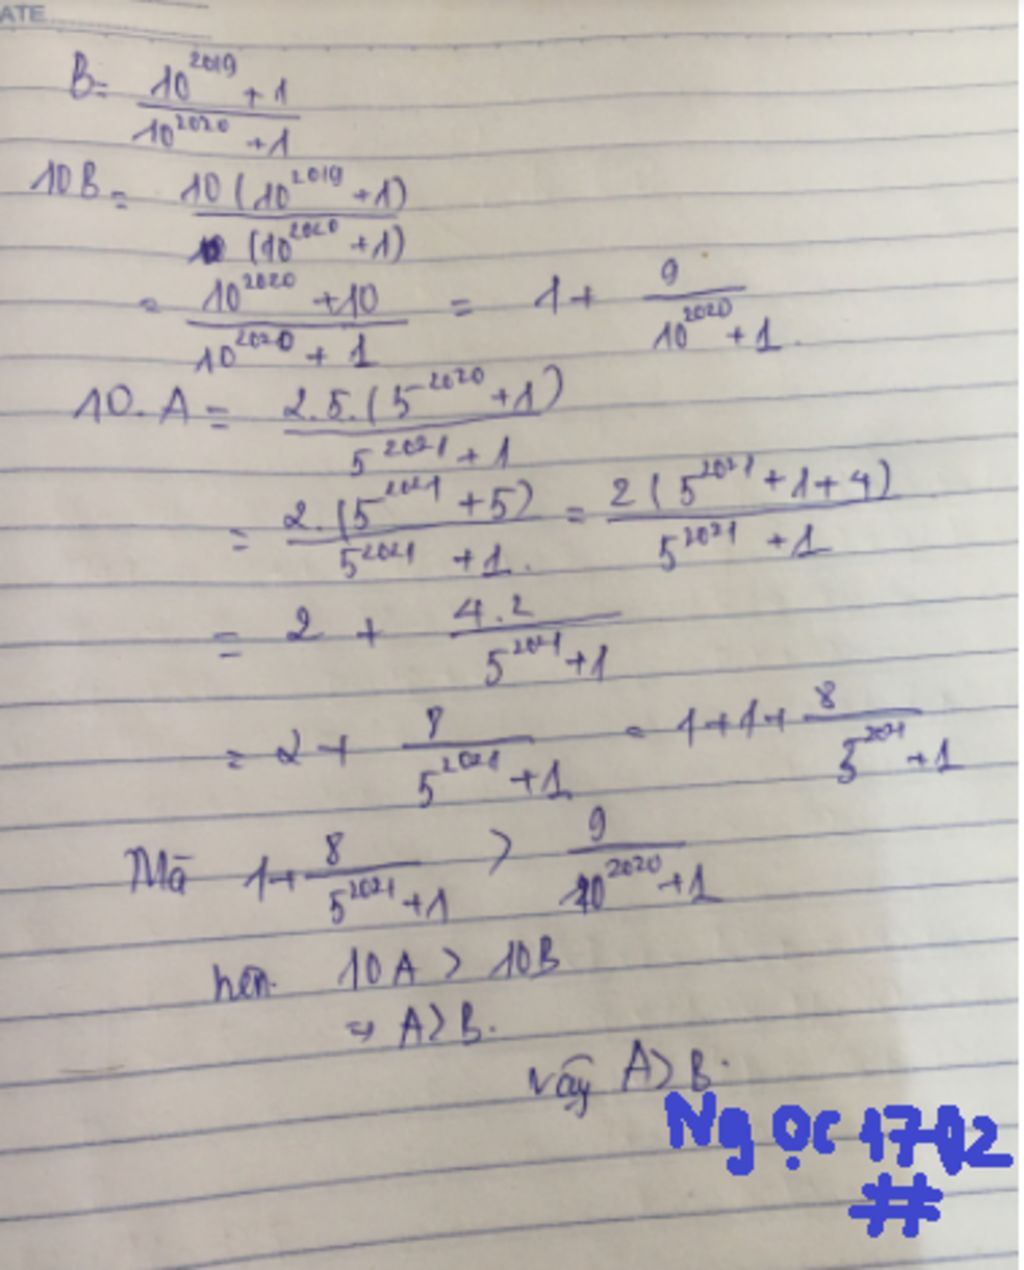 ATE
B = \frac{10^{2019} + 1}{10^{2020} + 1}
10B = \frac{10(10^{2019} + 1)}{(10^{2020} + 1)}
= \frac{10^{2020} + 10}{10^{2020} + 1} = 1 + \frac{9}{10^{2020} + 1}.
10. A = \frac{2.5.(5^{2020} + 1)}{5^{2021} + 1}
= \frac{2.(5^{2021} + 5)}{5^{2021} + 1.} = \frac{2(5^{2021} + 1 + 4)}{5^{2021} + 1}
= 2 + \frac{4.2}{5^{2021} + 1}
= 2 + \frac{8}{5^{2021} + 1} = 1 + 1 + \frac{8}{5^{2021} + 1}
Mà 1 + \frac{8}{5^{2021} + 1} > \frac{9}{10^{2020} + 1}
nên 10A > 10B
⇒ A > B.
Vậy A > B.
Ngọc 17-02
##